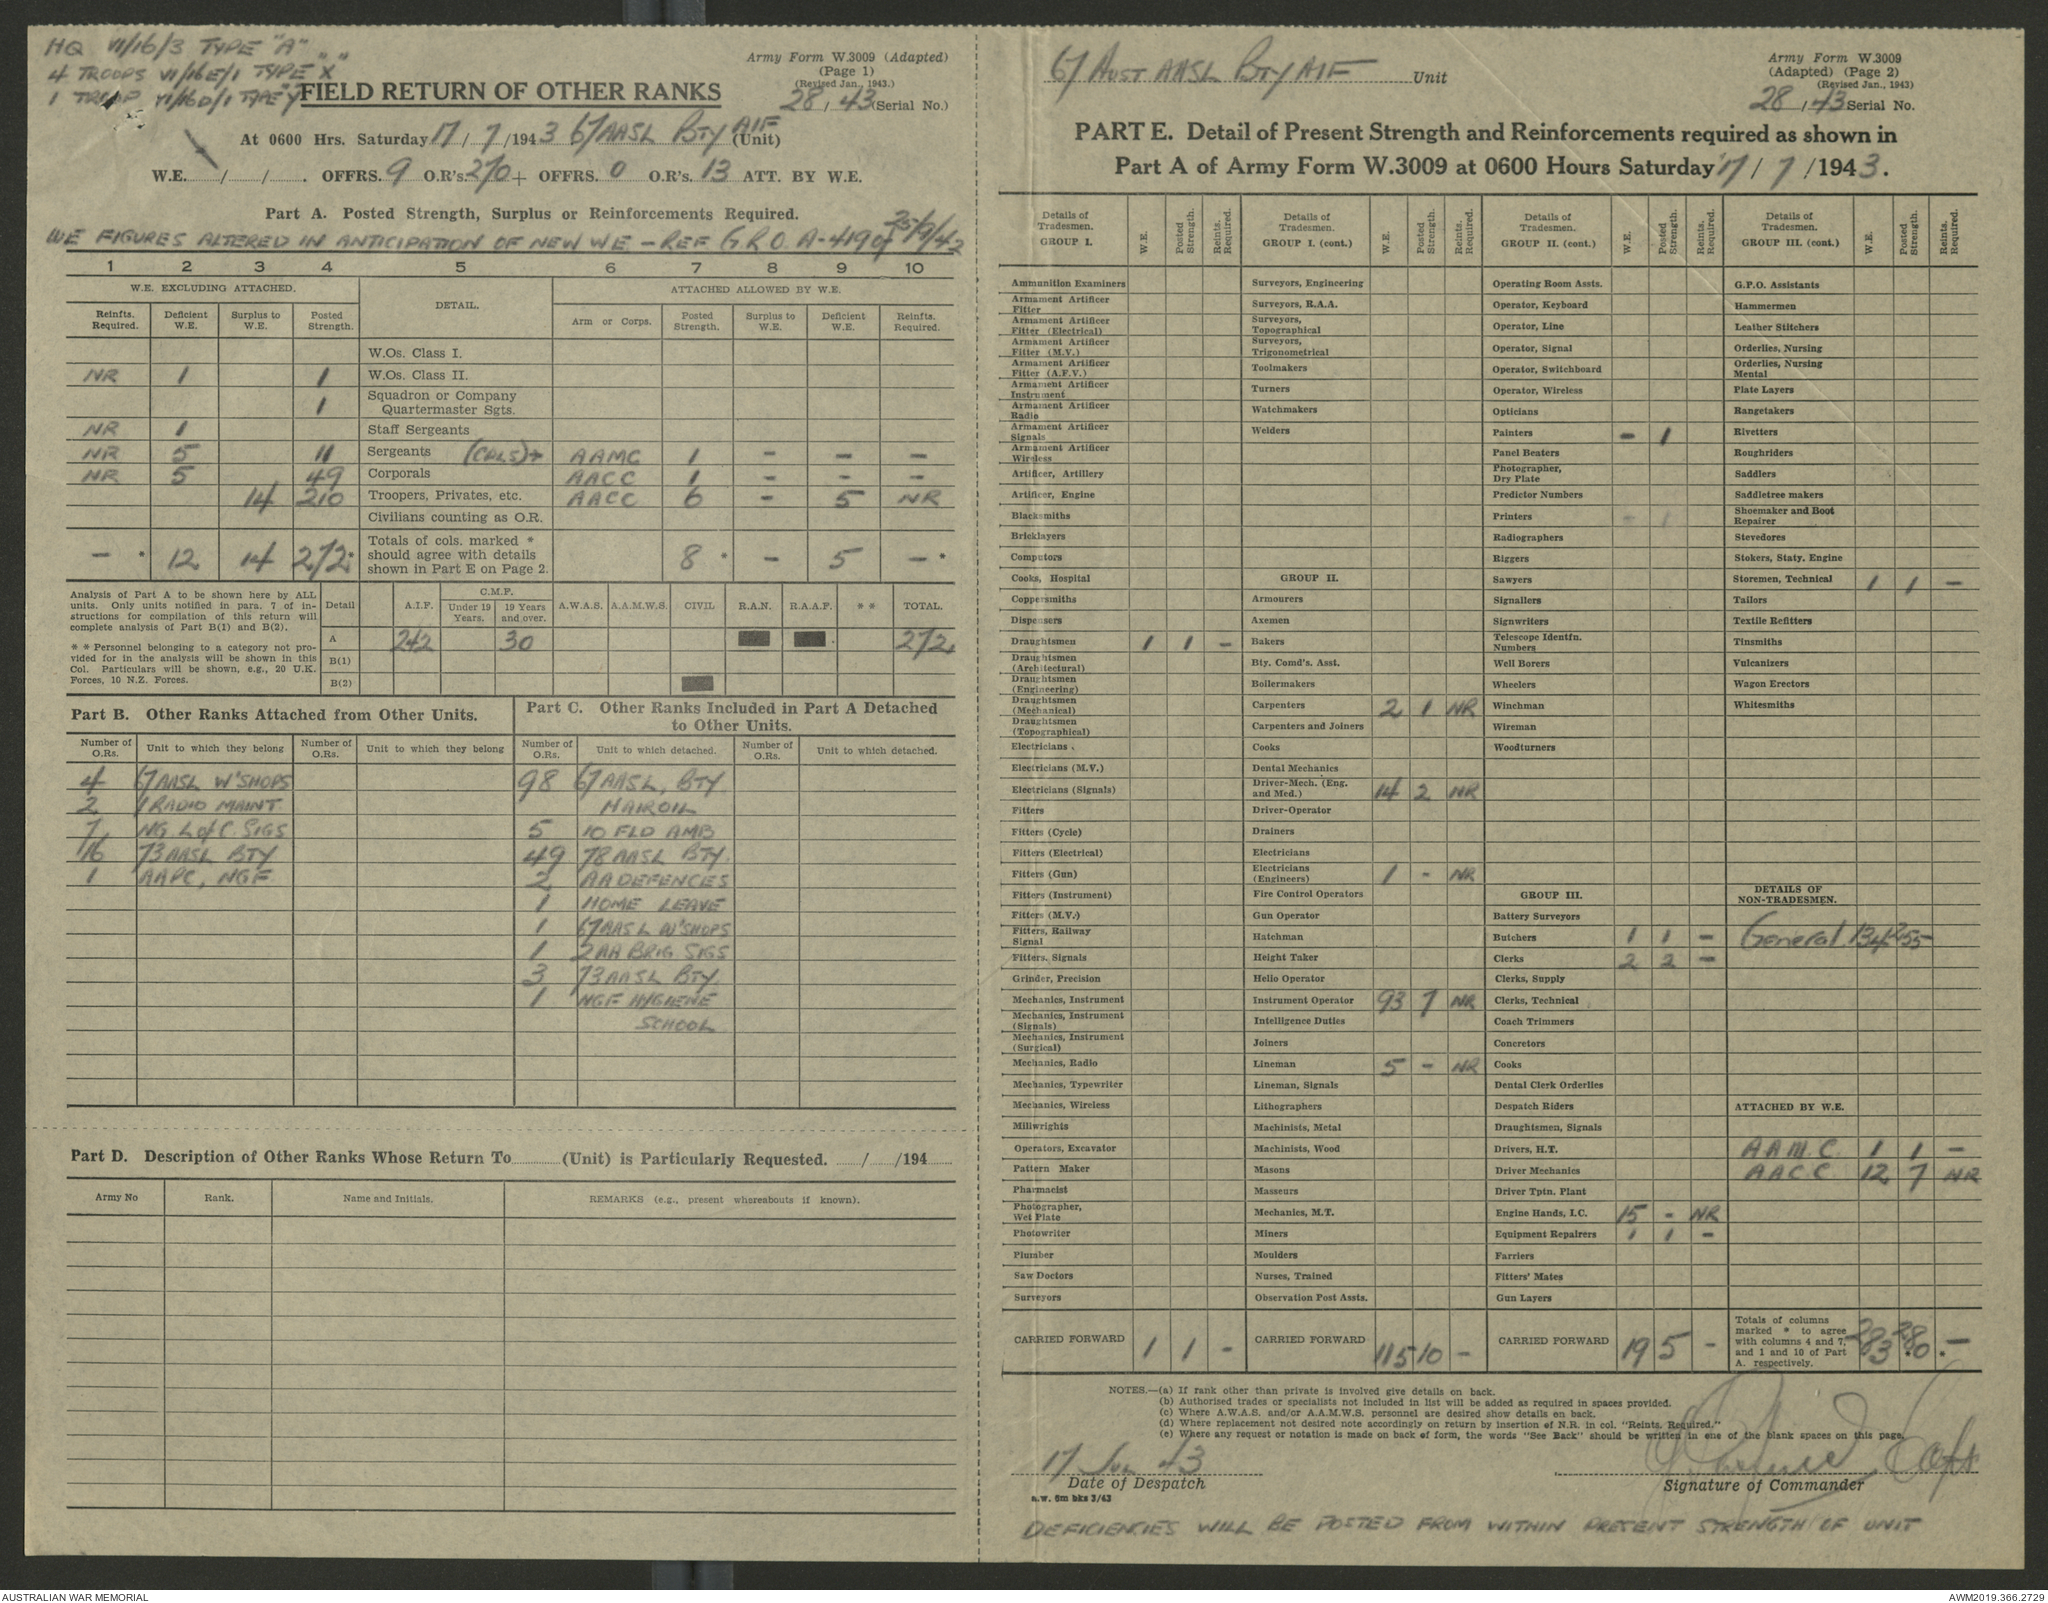 HQ VI/16/3 TYPE "A"
4 TROOPS VI/16E/1 TYPE "X"
1 TROOP VI/16D/1 TYPE "Y"
Army Form W.3009 (Adapted)
(Page 1)
(Revised Jan., 1943.)
28/43 (Serial No.)
FIELD RETURN OF OTHER RANKS
At 0600 Hrs. Saturday 17/7/1943 67 AASL BTY AIF (Unit)
W.E. / / . OFFRS. 9 O.R's. 270 + OFFRS. 0 O.R's. 13 ATT. BY W.E.
Part A. Posted Strength, Surplus or Reinforcements Required.
WE FIGURES ALTERED IN ANTICIPATION OF NEW WE - REF G.R.O. A-419 of 25/9/42
1 2 3 4 5 6 7 8 9 10
W.E. EXCLUDING ATTACHED. DETAIL. ATTACHED ALLOWED BY W.E.
Reinfts. Required. Deficient W.E. Surplus to W.E. Posted Strength. Arm or Corps. Posted Strength. Surplus to W.E. Deficient W.E. Reinfts. Required.
W.Os. Class I.
NR 1 1 W.Os. Class II.
1 Squadron or Company Quartermaster Sgts.
NR 1 Staff Sergeants
NR 5 11 Sergeants (CPLS)+ AAMC 1 - - -
NR 5 49 Corporals AACC 1 - - -
14 210 Troopers, Privates, etc. AACC 6 - 5 NR
Civilians counting as O.R.
- * 12 14 272* Totals of cols. marked * should agree with details shown in Part E on Page 2. 8 * - 5 - *
Analysis of Part A to be shown here by ALL units. Only units notified in para. 7 of instructions for compilation of this return will complete analysis of Part B(1) and B(2).
* * Personnel belonging to a category not provided for in the analysis will be shown in this Col. Particulars will be shown, e.g., 20 U.K. Forces, 10 N.Z. Forces.
Detail A.I.F. C.M.F. Under 19 Years. 19 Years and over. A.W.A.S. A.A.M.W.S. CIVIL R.A.N. R.A.A.F. * * TOTAL.
A 242 30 272
B(1)
B(2)
Part B. Other Ranks Attached from Other Units.
Number of O.Rs. Unit to which they belong Number of O.Rs. Unit to which they belong
4 67 AASL W'SHOPS
2 1 RADIO MAINT
7 NG. L of C. SIGS
16 73 AASL BTY
1 AAPC, NGF
Part C. Other Ranks Included in Part A Detached to Other Units.
Number of O.Rs. Unit to which detached. Number of O.Rs. Unit to which detached.
98 67 AASL, BTY
5 10 FLD AMB
49 78 AASL BTY.
2 AA DEFENCES
1 HOME LEAVE
1 67 AASL W'SHOPS
1 2 AA BRIG SIGS
3 73 AASL BTY.
1 NGF HYGIENE
SCHOOL
Part D. Description of Other Ranks Whose Return To (Unit) is Particularly Requested. / /194
Army No Rank. Name and Initials. REMARKS (e.g., present whereabouts if known).
67 AUST AASL BTY AIF Unit
Army Form W.3009
(Adapted) (Page 2)
(Revised Jan., 1943)
28/43 Serial No.
PART E. Detail of Present Strength and Reinforcements required as shown in
Part A of Army Form W.3009 at 0600 Hours Saturday 17/7/1943.
Details of Tradesmen. GROUP I. W.E. Posted Strength. Reints. Required.
Ammunition Examiners
Armament Artificer Fitter
Armament Artificer Fitter (Electrical)
Armament Artificer Fitter (M.V.)
Armament Artificer Fitter (A.F.V.)
Armament Artificer Instrument
Armament Artificer Radio
Armament Artificer Signals
Armament Artificer Wireless
Artificer, Artillery
Artificer, Engine
Blacksmiths
Bricklayers
Computors
Cooks, Hospital
Coppersmiths
Dispensers
Draughtsmen 1 1 -
Draughtsmen (Architectural)
Draughtsmen (Engineering)
Draughtsmen (Mechanical)
Draughtsmen (Topographical)
Electricians
Electricians (M.V.)
Electricians (Signals)
Fitters
Fitters (Cycle)
Fitters (Electrical)
Fitters (Gun)
Fitters (Instrument)
Fitters (M.V.)
Fitters, Railway Signal
Fitters, Signals
Grinder, Precision
Mechanics, Instrument
Mechanics, Instrument (Signals)
Mechanics, Instrument (Surgical)
Mechanics, Radio
Mechanics, Typewriter
Mechanics, Wireless
Millwrights
Operators, Excavator
Pattern Maker
Pharmacist
Photographer, Wet Plate
Photowriter
Plumber
Saw Doctors
Surveyors
CARRIED FORWARD 1 1 -
Details of Tradesmen. GROUP I. (cont.) W.E. Posted Strength. Reints. Required.
Surveyors, Engineering
Surveyors, R.A.A.
Surveyors, Topographical
Surveyors, Trigonometrical
Toolmakers
Turners
Watchmakers
Welders
GROUP II.
Armourers
Axemen
Bakers
Bty. Comd's. Asst.
Boilermakers
Carpenters 2 1 NR
Carpenters and Joiners
Cooks
Dental Mechanics
Driver-Mech. (Eng. and Med.) 14 2 NR
Driver-Operator
Drainers
Electricians
Electricians (Engineers) 1 - NR
Fire Control Operators
Gun Operator
Hatchman
Height Taker
Helio Operator
Instrument Operator 93 7 NR
Intelligence Duties
Joiners
Lineman 5 - NR
Lineman, Signals
Lithographers
Machinists, Metal
Machinists, Wood
Masons
Masseurs
Mechanics, M.T.
Miners
Moulders
Nurses, Trained
Observation Post Assts.
CARRIED FORWARD 115 10 -
Details of Tradesmen. GROUP II. (cont.) W.E. Posted Strength. Reints. Required.
Operating Room Assts.
Operator, Keyboard
Operator, Line
Operator, Signal
Operator, Switchboard
Operator, Wireless
Opticians
Painters - 1
Panel Beaters
Photographer, Dry Plate
Predictor Numbers
Printers - 1
Radiographers
Riggers
Sawyers
Signallers
Signwriters
Telescope Identfn. Numbers
Well Borers
Wheelers
Winchman
Wireman
Woodturners
GROUP III.
Battery Surveyors
Butchers 1 1 -
Clerks 2 2 -
Clerks, Supply
Clerks, Technical
Coach Trimmers
Concretors
Cooks
Dental Clerk Orderlies
Despatch Riders
Draughtsmen, Signals
Drivers, H.T.
Driver Mechanics
Driver Tptn. Plant
Engine Hands, I.C. 15 - NR
Equipment Repairers 1 1 -
Farriers
Fitters' Mates
Gun Layers
CARRIED FORWARD 19 5 -
Details of Tradesmen. GROUP III. (cont.) W.E. Posted Strength. Reints. Required.
G.P.O. Assistants
Hammermen
Leather Stitchers
Orderlies, Nursing
Orderlies, Nursing Mental
Plate Layers
Rangetakers
Rivetters
Roughriders
Saddlers
Saddletree makers
Shoemaker and Boot Repairer
Stevedores
Stokers, Staty. Engine
Storemen, Technical 1 1 -
Tailors
Textile Refitters
Tinsmiths
Vulcanizers
Wagon Erectors
Whitesmiths
DETAILS OF NON-TRADESMEN.
General 134 255 -
ATTACHED BY W.E.
A A M C. 1 1 -
A A C. C. 12 7 NR
Totals of columns marked * to agree with columns 4 and 7, and 1 and 10 of Part A. respectively. 283 280 -
NOTES.—(a) If rank other than private is involved give details on back.
(b) Authorised trades or specialists not included in list will be added as required in spaces provided.
(c) Where A.W.A.S. and/or A.A.M.W.S. personnel are desired show details on back.
(d) Where replacement not desired note accordingly on return by insertion of N.R. in col. "Reints. Required."
(e) Where any request or notation is made on back of form, the words "See Back" should be written in one of the blank spaces on this page.
17 JUL 43
Date of Despatch
Capt
Signature of Commander
a.w. 6m bks 3/43
DEFICIENCIES WILL BE POSTED FROM WITHIN PRESENT STRENGTH OF UNIT
AUSTRALIAN WAR MEMORIAL
AWM2019.366.2729